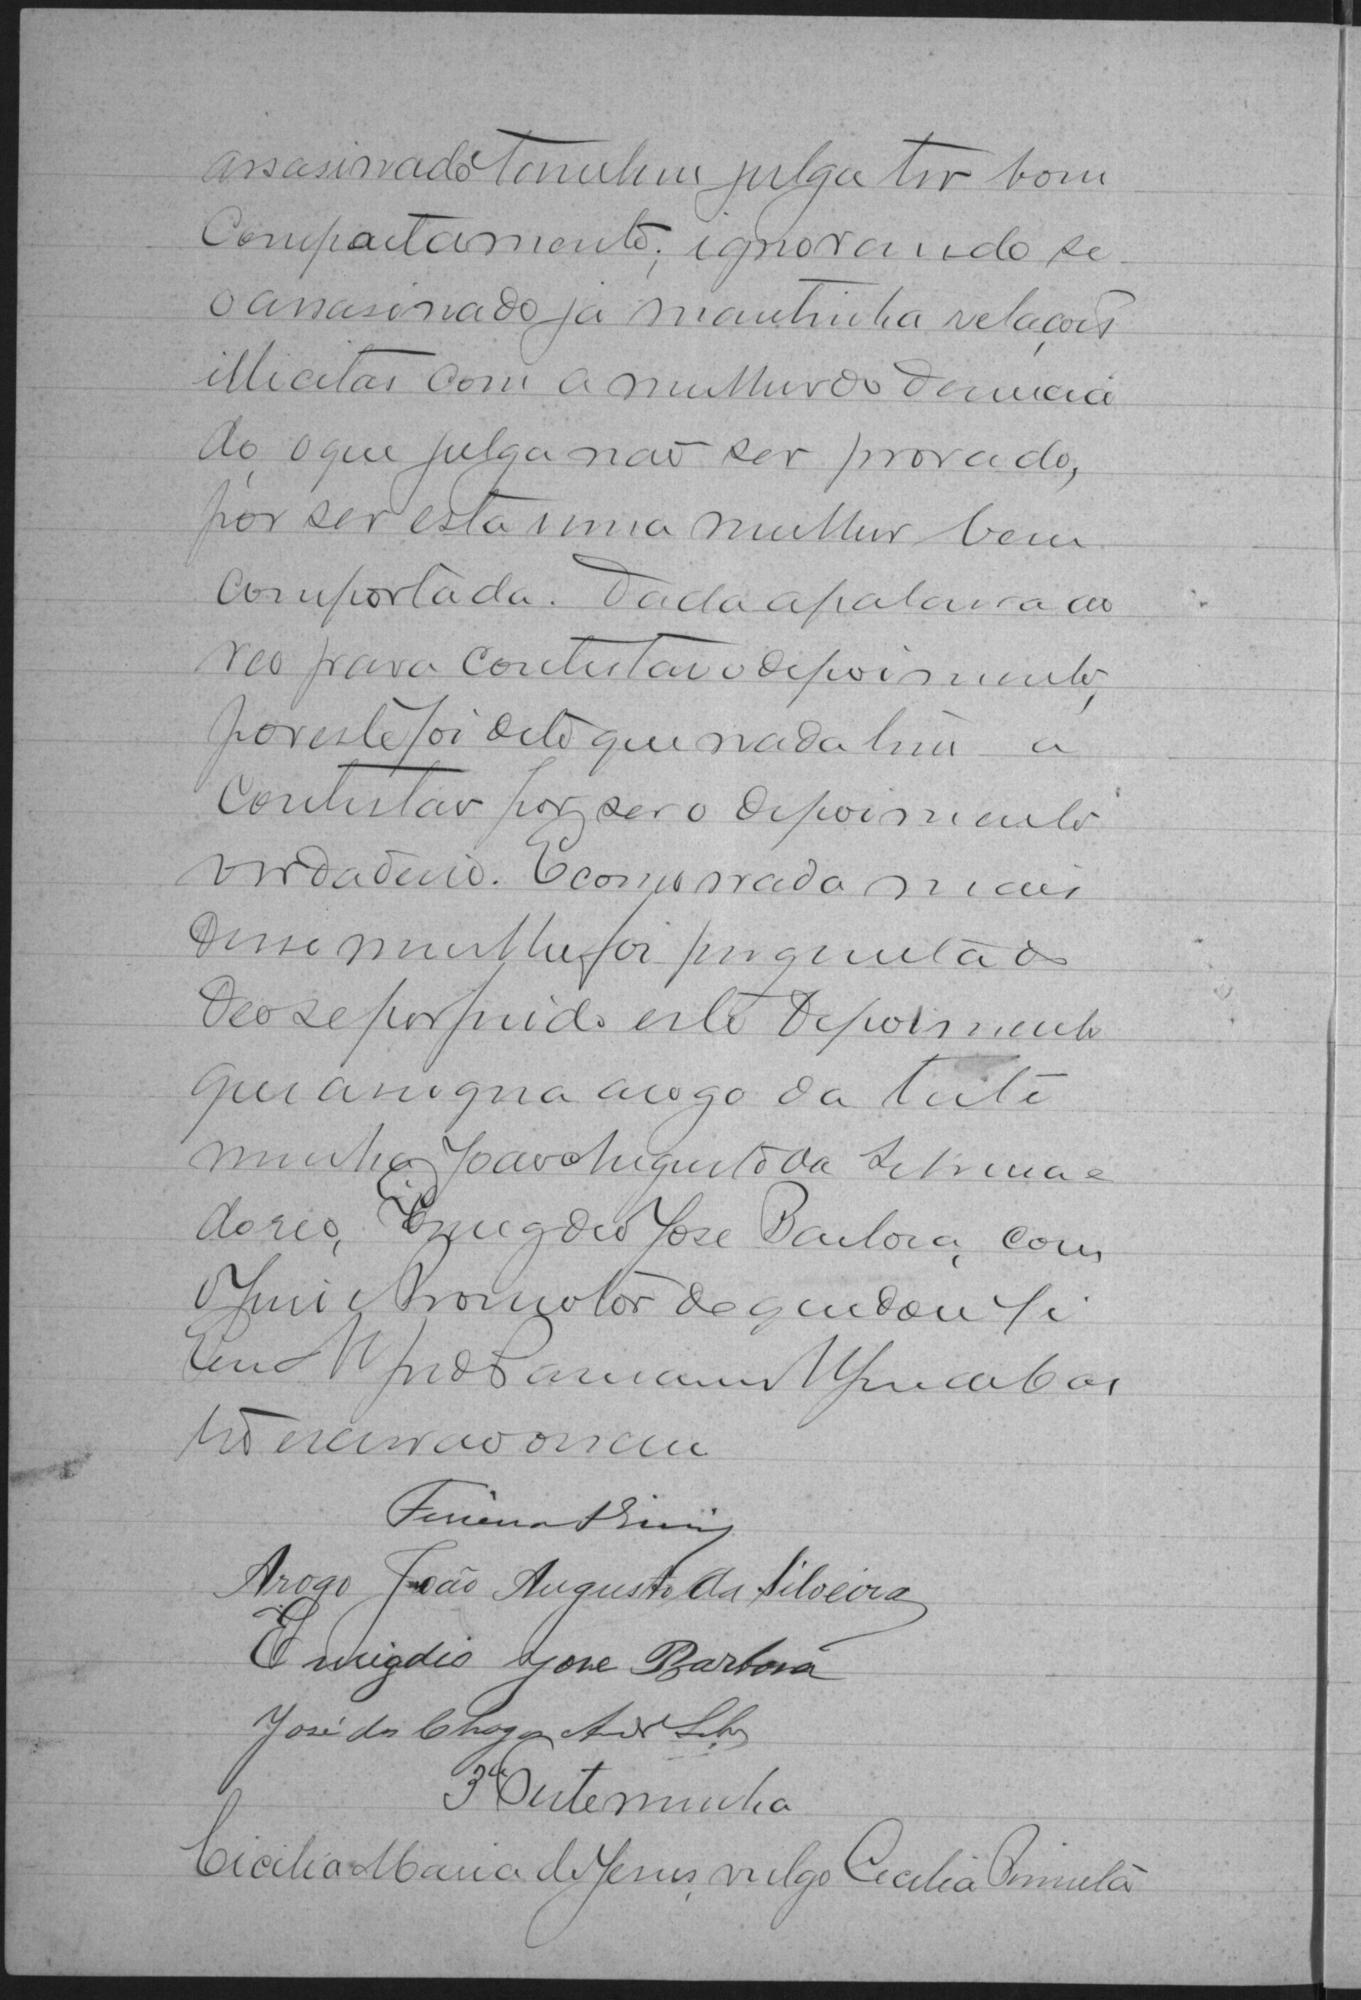 assasinado tambem julga ter bom
Compartamento; ignorando se
o assasinado ja mantinha relações
illicitas com a mulher do denuncia
do, o que julga não ser provado,
por ser esta uma mulher bem
comportada. Dada a palavra ao
reo para contestar o depoimento,
por este foi dito que nada tem a
contestar por ser o depoimento
verdadeiro. E como nada mais
disse nem lhe foi preguntado
deo se por findo este depoimento
que assigna arogo da teste
munha João Augusto da Silveira e
do reo, Emigdio Jose Barbosa, com
o Juiz e Promotor de que dou fé
Eu
escrivão
Arogo João Augusto da Silveira
Emigdio Jose Barbosa
José das Chagas
3ª Testemunha
Cicilia Maria de Jesus, vulgo Cecilia Pimenta